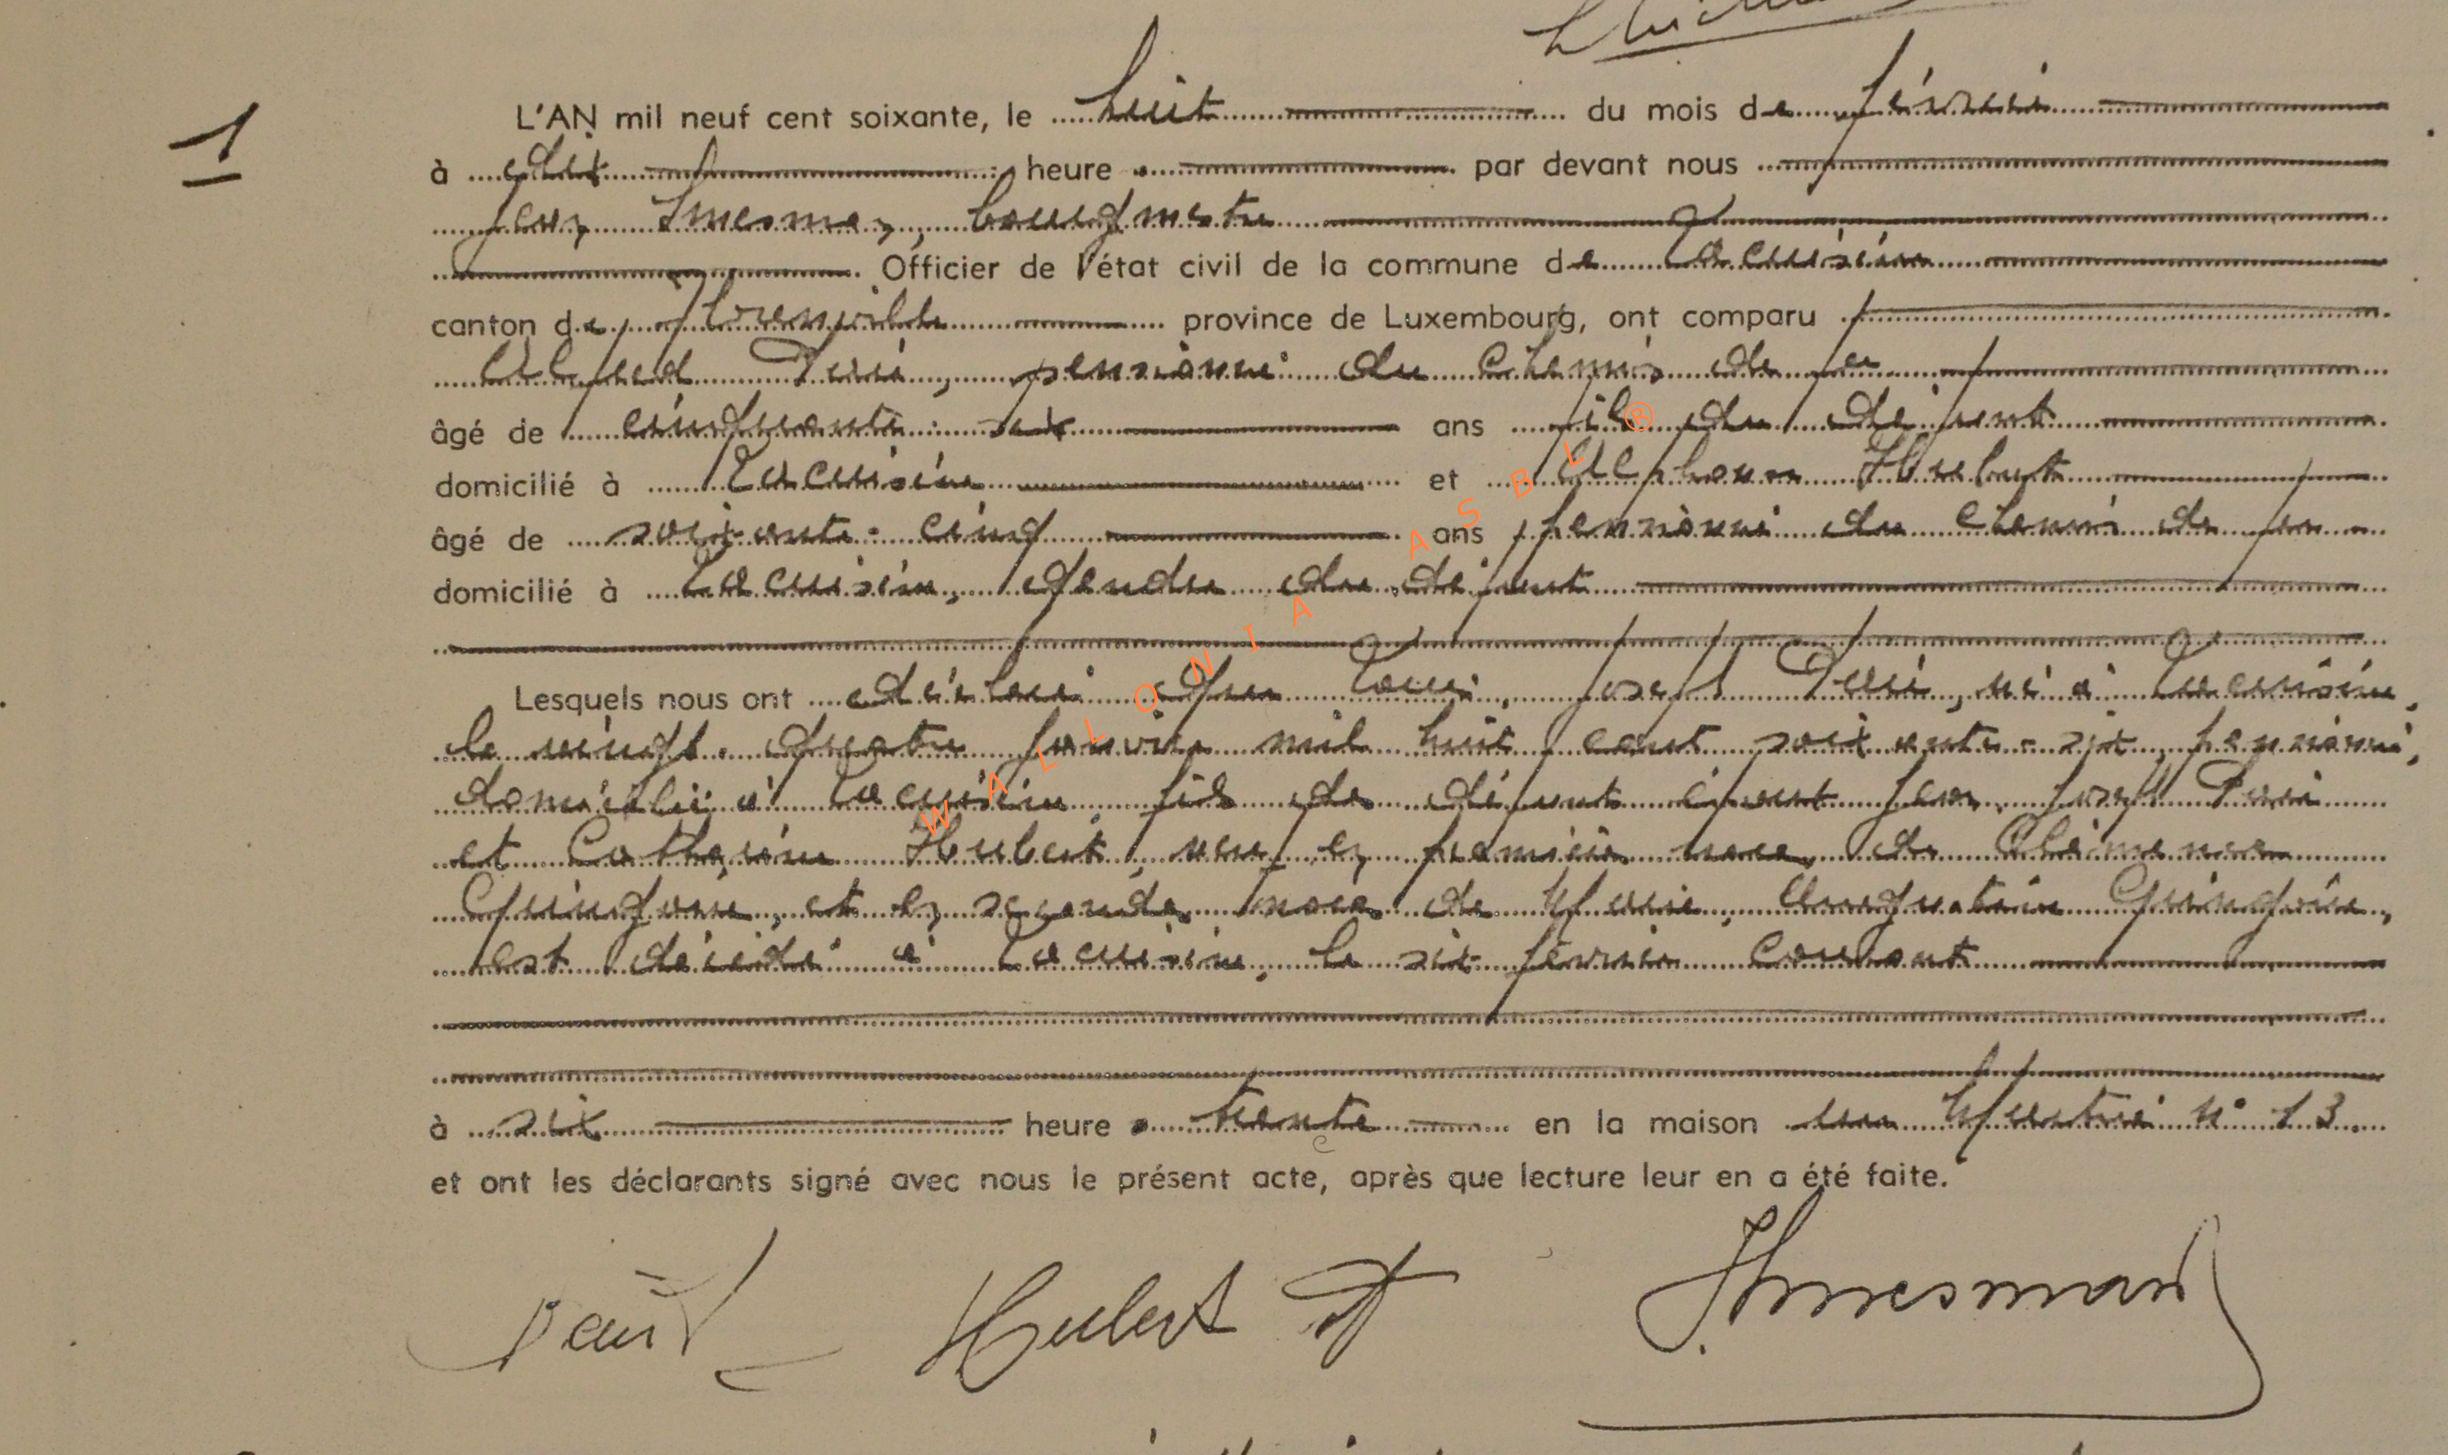 1
L'AN mil neuf cent soixante, le huit du mois de février
à dix heure par devant nous
Jean Thuesman, bourgmestre
Officier de l'état civil de la commune de Lacuisine
canton de Florenville province de Luxembourg, ont comparu
Alfred Pairé, pensionné du chemin de fer
âgé de cinquante-six ans fils du défunt
domicilié à Lacuisine et Alphonse Hubert
âgé de soixante-cinq ans pensionné du chemin de fer
domicilié à Lacuisine, gendre du défunt
Lesquels nous ont déclaré que Louis, Joseph né à Lacuisine,
le vingt-quatre janvier mil huit cent soixante-six, pensionné,
domicilié à Lacuisine, fils de défunts époux Jean, Joseph
et Catherine Hubert, veuf en premières noces de Clémence
et en secondes noces de Marie, Augustine
est décédé à Lacuisine, le six février courant
à six heure trente en la maison rue n° 13.
et ont les déclarants signé avec nous le présent acte, après que lecture leur en a été faite.
Hubert A
WALLONIA ASBL ®